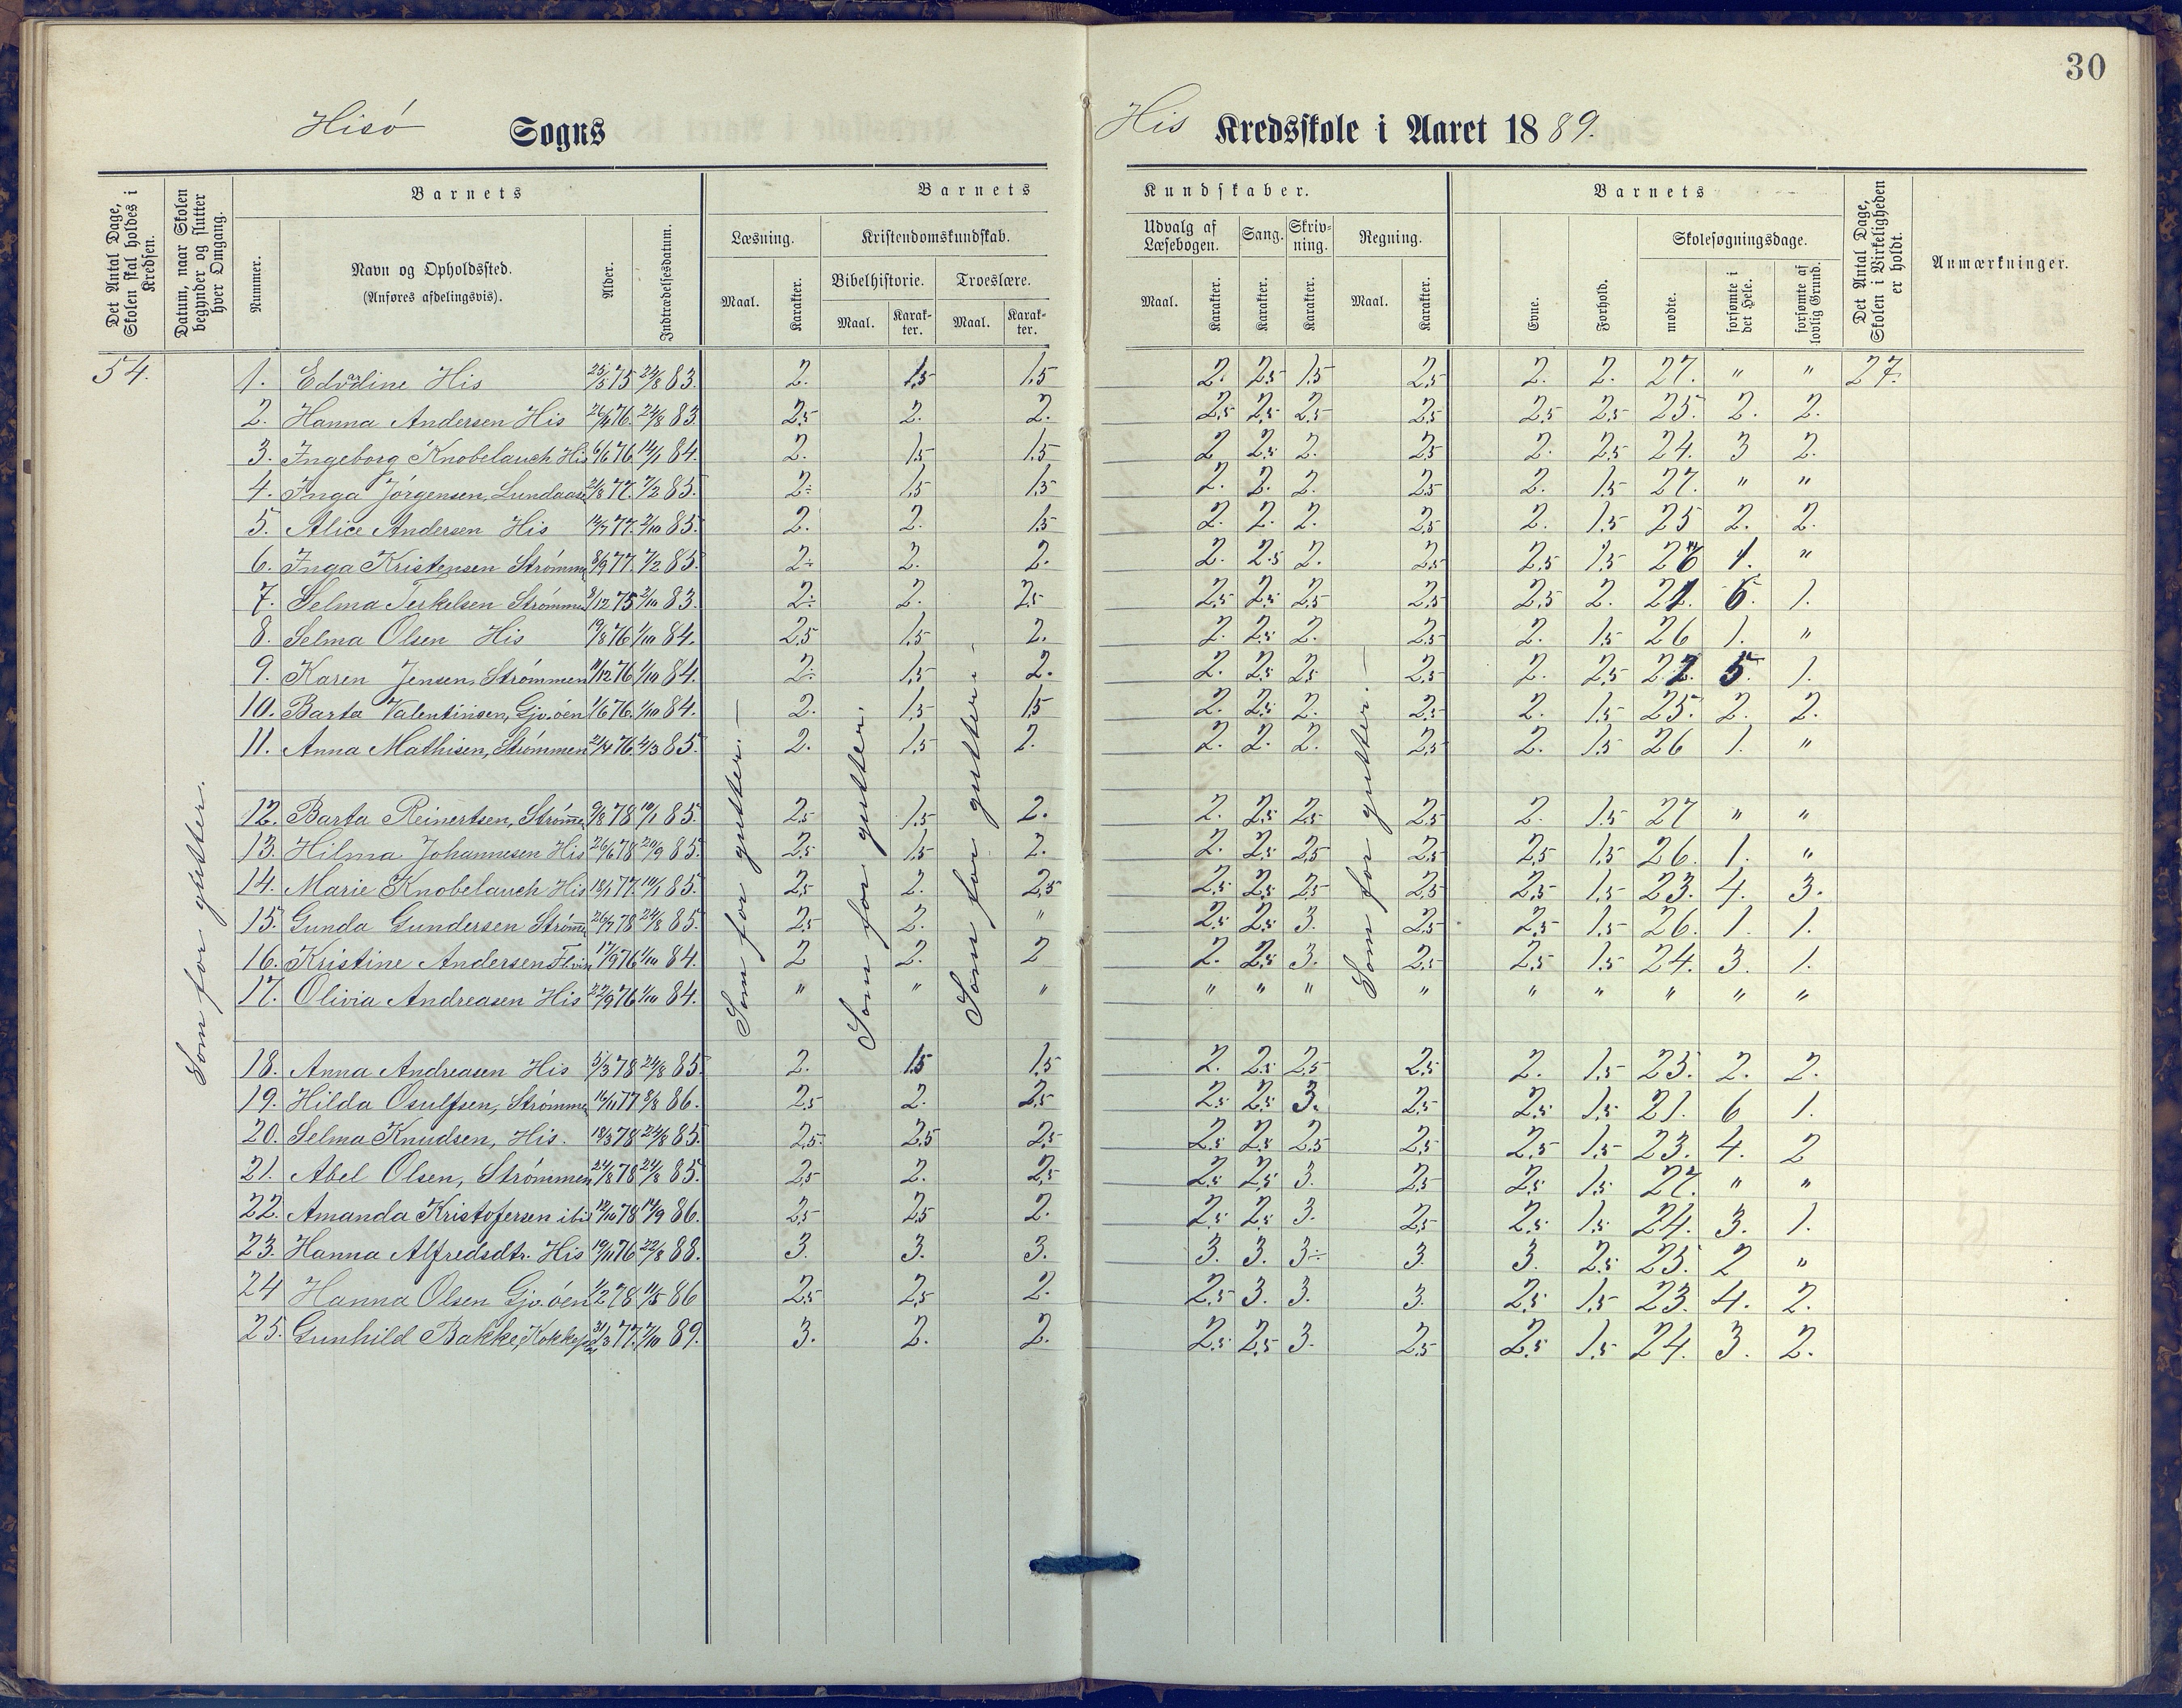 30
Hisó Sogns His Kredsskole i Aaret 1889.
Det Antal Dage, Skolen skal holdes i Kredsen.
Datum, naar Skolen begynder og slutter hver Omgang.
Barnets
Nummer.
Navn og Opholdssted.
(Anføres afdelingsvis).
Alder.
Indtrædelsesdatum.
Barnets Kundskaber.
Læsning. Kristendomskundskab. Udvalg af Læsebogen. Sang. Skriv-ning. Regning.
Bibelhistorie. Troeslære.
Maal. Karakter. Maal. Karak-ter. Maal. Karak-ter. Maal. Karakter. Karakter. Karakter. Maal. Karakter.
Barnets
Evne. Forhold. Skolesøgningsdage.
mødte. forsømte i det Hele. forsømte af lovlig Grund.
Det Antal Dage, Skolen i Virkeligheden er holdt.
Anmærkninger.
54. 1. Edvardine His 25/5 75 24/8 83. 2. 1.5 1.5 2. 2.5 1.5 2.5 2. 2. 27. " " 27.
2. Hanna Andersen His 76. 24/8 83. 2.5 2. 2. 2.5 2.5 2.5 2.5 2.5 2.5 25. 2. 2.
3. Ingeborg Knobelauch His 6/6 76 14/1 84. 2. 1.5 1.5 2 2.5 2. 2.5 2. 2.5 24. 3 2.
4. Inga Jórgensen, Lundaase 21/8 77. 7/2 85. 2÷ 1.5 1.5 2. 2. 2. 2.5 2. 1.5 27. " "
5. Alice Andersen His 77. 2/10 85. 2. 2. 1.5 2. 2. 2. 2.5 2. 1.5 25 2. 2.
6. Inga Kristensen Strómm 8/9 77. 7/2 85. 2÷ 2. 2. 2. 2.5 2. 2.5 2.5 1.5 26 1. "
7. Selma Terkelsen Strómmen 8/12 75 2/10 83. 2÷ 2. 2.5 2.5 2.5 2.5 2.5 2.5 2. 21. 6. 1.
8. Selma Olsen His 19/8 76 1/10 84. 2.5 1.5 2. 2. 2.5 2. 2.5 2. 1.5 26 1. "
9. Karen Jensen, Strómmen 11/12 76 1/10 84. 2÷ 1.5 2. 2. 2.5 2.5 2.5 2. 2.5 22. 5. 1.
10. Barta Valentinsen, Gjv.óen 1/6 76. 1/10 84. 2. 1.5 1.5 2. 2.5 2. 2.5 2. 1.5 25. 2. 2.
11. Anna Mathisen, Strómmen 21/4 76. 2/3 85. 2. 1.5 2. 2. 2. 2. 2.5 2. 1.5 26 1. "
12. Barta Reinertsen, Strómme 9/8 78 19/1 85. 2.5 1.5 2. 2. 2.5 2.5 2.5 2. 1.5 27 " "
13. Hilma Johannesen His 26/6 78 20/9 85. 2.5 1.5 2. 2. 2.5 2.5 2.5 2.5 1.5 26. 1. "
14. Marie Knobelauch His 18/1 77. 19/1 85. 2.5 2. 2.5 2.5 2.5 2.5 2.5 2.5 1.5 23. 4. 3.
15. Gunda Gundersen Strómm 26/7 78 24/8 85. 2.5 2. " 2.5 2.5 3. 2.5 2.5 1.5 26. 1. 1.
16. Kristine Andersen 17/9 76 1/10 84. 2 2. 2 2. 2.5 3. 2.5 2.5 1.5 24. 3. 1.
17. Olivia Andreasen His 22/9 76 1/10 84. " " " " " " " " " " " "
18. Anna Andreasen His 5/3 78 24/8 85. 2. 1.5 1.5 2. 2.5 2.5 2.5 2. 1.5 25. 2. 2.
19. Hilda Osulfsen, Strómme 16/11 77 3/8 86. 2.5 2. 2.5 2.5 2.5 3. 2.5 2.5 1.5 21. 6 1.
20. Selma Knudsen, His. 18/3 78 24/8 85. 2.5 2.5 2.5 2.5 2.5 2.5 2.5 2.5 1.5 23. 4. 2
21. Abel Olsen, Strómmen 24/8 78 24/8 85. 2.5 2. 2.5 2.5 2.5 3. 2.5 2.5 1.5 27. " "
22. Amanda Kristofersen ibid 12/10 78 17/9 86. 2.5 2.5 2. 2.5 2.5 3. 2.5 2.5 1.5 24. 3. 1.
23. Hanna Alfredsdtr. His 19/11 76 22/8 88. 3. 3. 3. 3. 3. 3÷ 3. 3. 2.5 25. 2 "
24 Hanna Olsen Gjv.óen 1/2 78 11/5 86 2.5 2.5 2. 2.5 3. 3. 3. 2.5 1.5 23. 4. 2.
25. Gunhild Bakke, 31/3 77. 7/10 89. 3. 2. 2. 2.5 2.5 3. 2.5 2.5 1.5 24. 3. 2.
Som for gutter.
Som for gutter.—
Som for gutter.
Som for gutter.—
Som for gutter.—